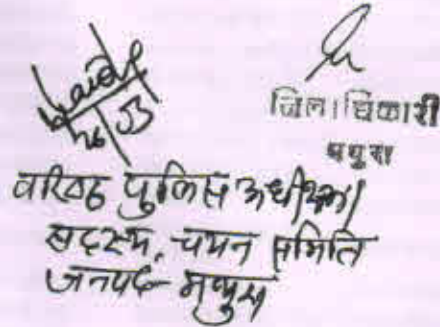 जिलाधिकारी
मथुरा
26/03
वरिष्ठ पुलिस अधीक्षक/
सदस्य, चयन समिति
जनपद- मथुरा